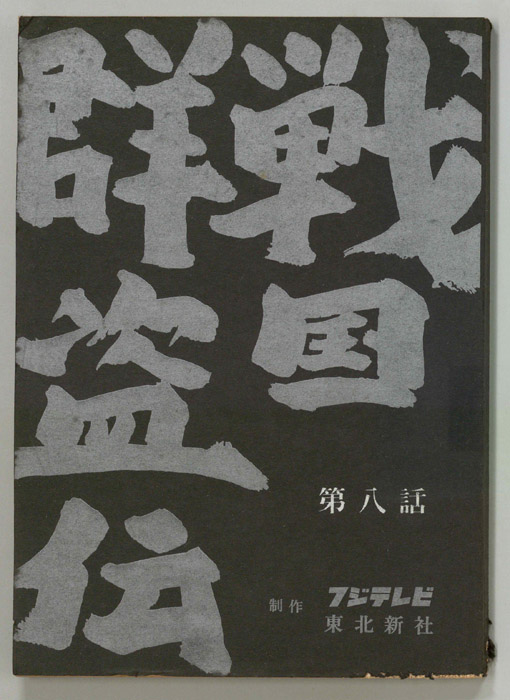 戦国
群盗伝
第八話
制作 フジテレビ
東北新社